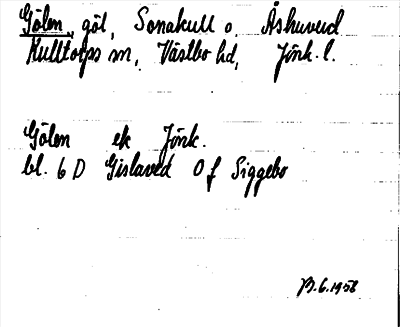 Gölen, göl, Sonakull o. Åshuvud
Kulltorps sn, Västbo hd, Jönk. l.
Gölen ek Jönk.
bl. 6 D Gislaved 0 f Siggebo
B. G. 1958